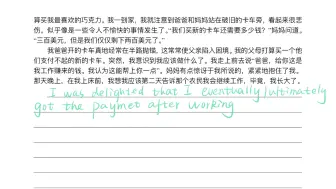 算买我最喜欢的巧克力。我一到家，我就注意到爸爸和妈妈站在破旧的卡车旁，看起来很悲
伤。似乎像是一些令人不愉快的事情发生了。“我们买新的卡车还需要多少钱？”妈妈问道。
“三百美元。但是我们仅仅剩下两百美元了。”
我爸爸开的卡车真地经常在半路抛锚，这常常使父亲陷入困境。我的父母打算买一个他
们支付不起的新的卡车。突然，我意识到我应该做什么了。我走上前去说“爸爸，给你这是
我工作赚来的钱。我认为这能帮上你一点”。妈妈有点惊讶于我所说的，紧紧地抱住了我。
那天晚上，在我上床前，我想我应该第二天告诉那个农民我会继续工作，毕竟，我长大了。
I was delighted that I eventually/ultimately
got the paymet after working